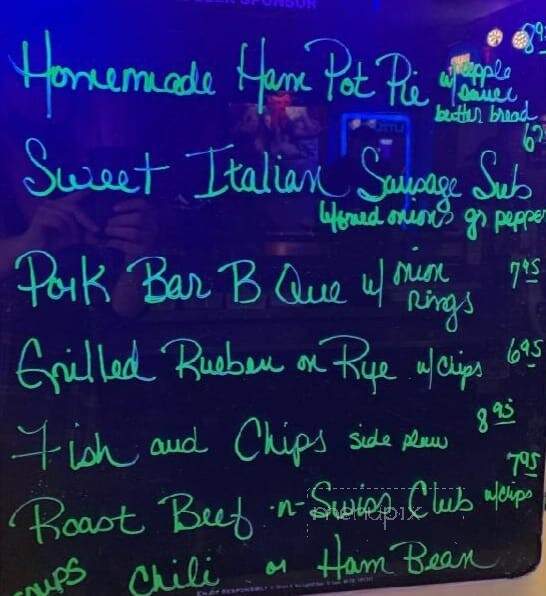 SPONSOR
Homemade Ham Pot Pie w/ apple sauce butter bread 8 95
Sweet Italian Sausage Sub 6 75
w/fried onions gr pepper
Pork Bar B Que w/ onion rings 7 95
Grilled Rueben on Rye w/ chips 6 95
Fish and Chips side slaw 8 95
Roast Beef -n- Swiss Club w/chips 7 95
menupix
soups Chili or Ham Bean
ENJOY RESPONSIBLY